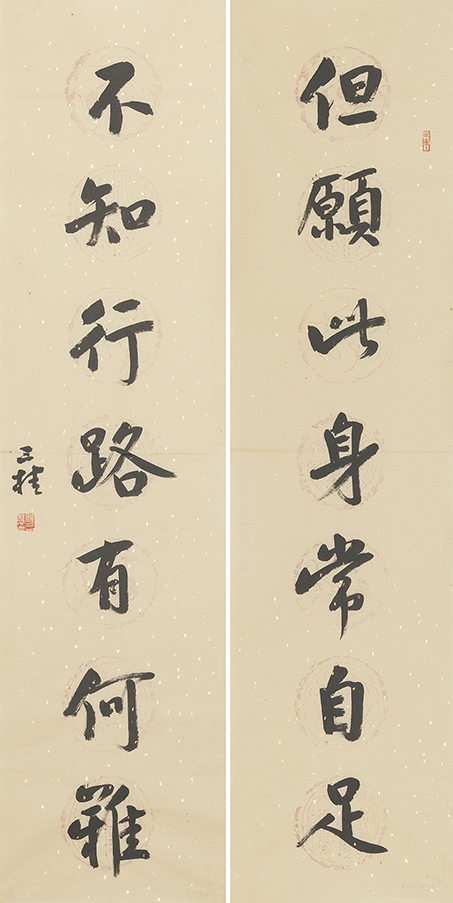 但願此身常自足
不知行路有何難